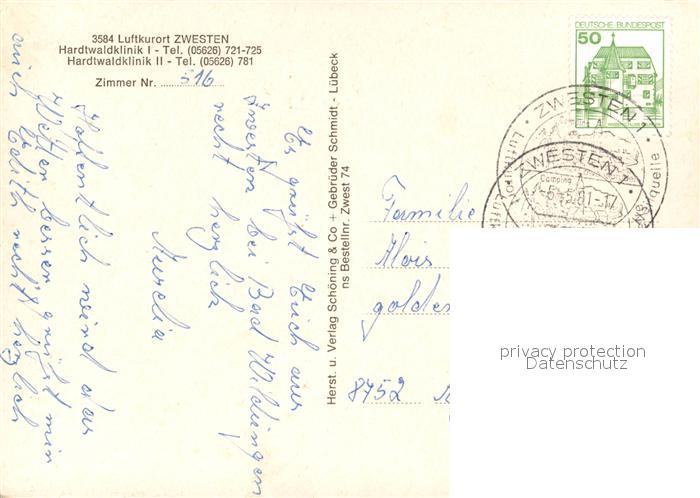 3584 Luftkurort ZWESTEN
Hardtwaldklinik I - Tel. (05626) 721-725
Hardtwaldklinik II - Tel. (05626) 781
Zimmer Nr. 516
Es grüßt Euch aus
Zwesten bei Bad Wildungen
recht herzlich
Aurelia
Hoffentlich wird das
Wetter besser, grüßt mir
auch Edith recht herzlich
Herst. u. Verlag Schöning & Co + Gebrüder Schmidt - Lübeck
ns Bestellnr. Zwest 74
DEUTSCHE BUNDESPOST
50
ZWESTEN 1
ZWESTEN 1
Camping
quelle
Familie
Alois
golden
8752
privacy protection
Datenschutz